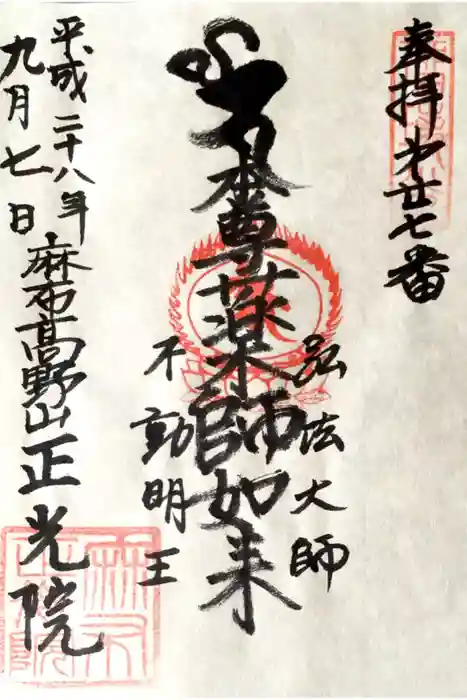 奉拝 第廿七番
弘法大師
本尊薬師如来
不動明王
平成二十八年
九月七日
麻布高野山 正光院